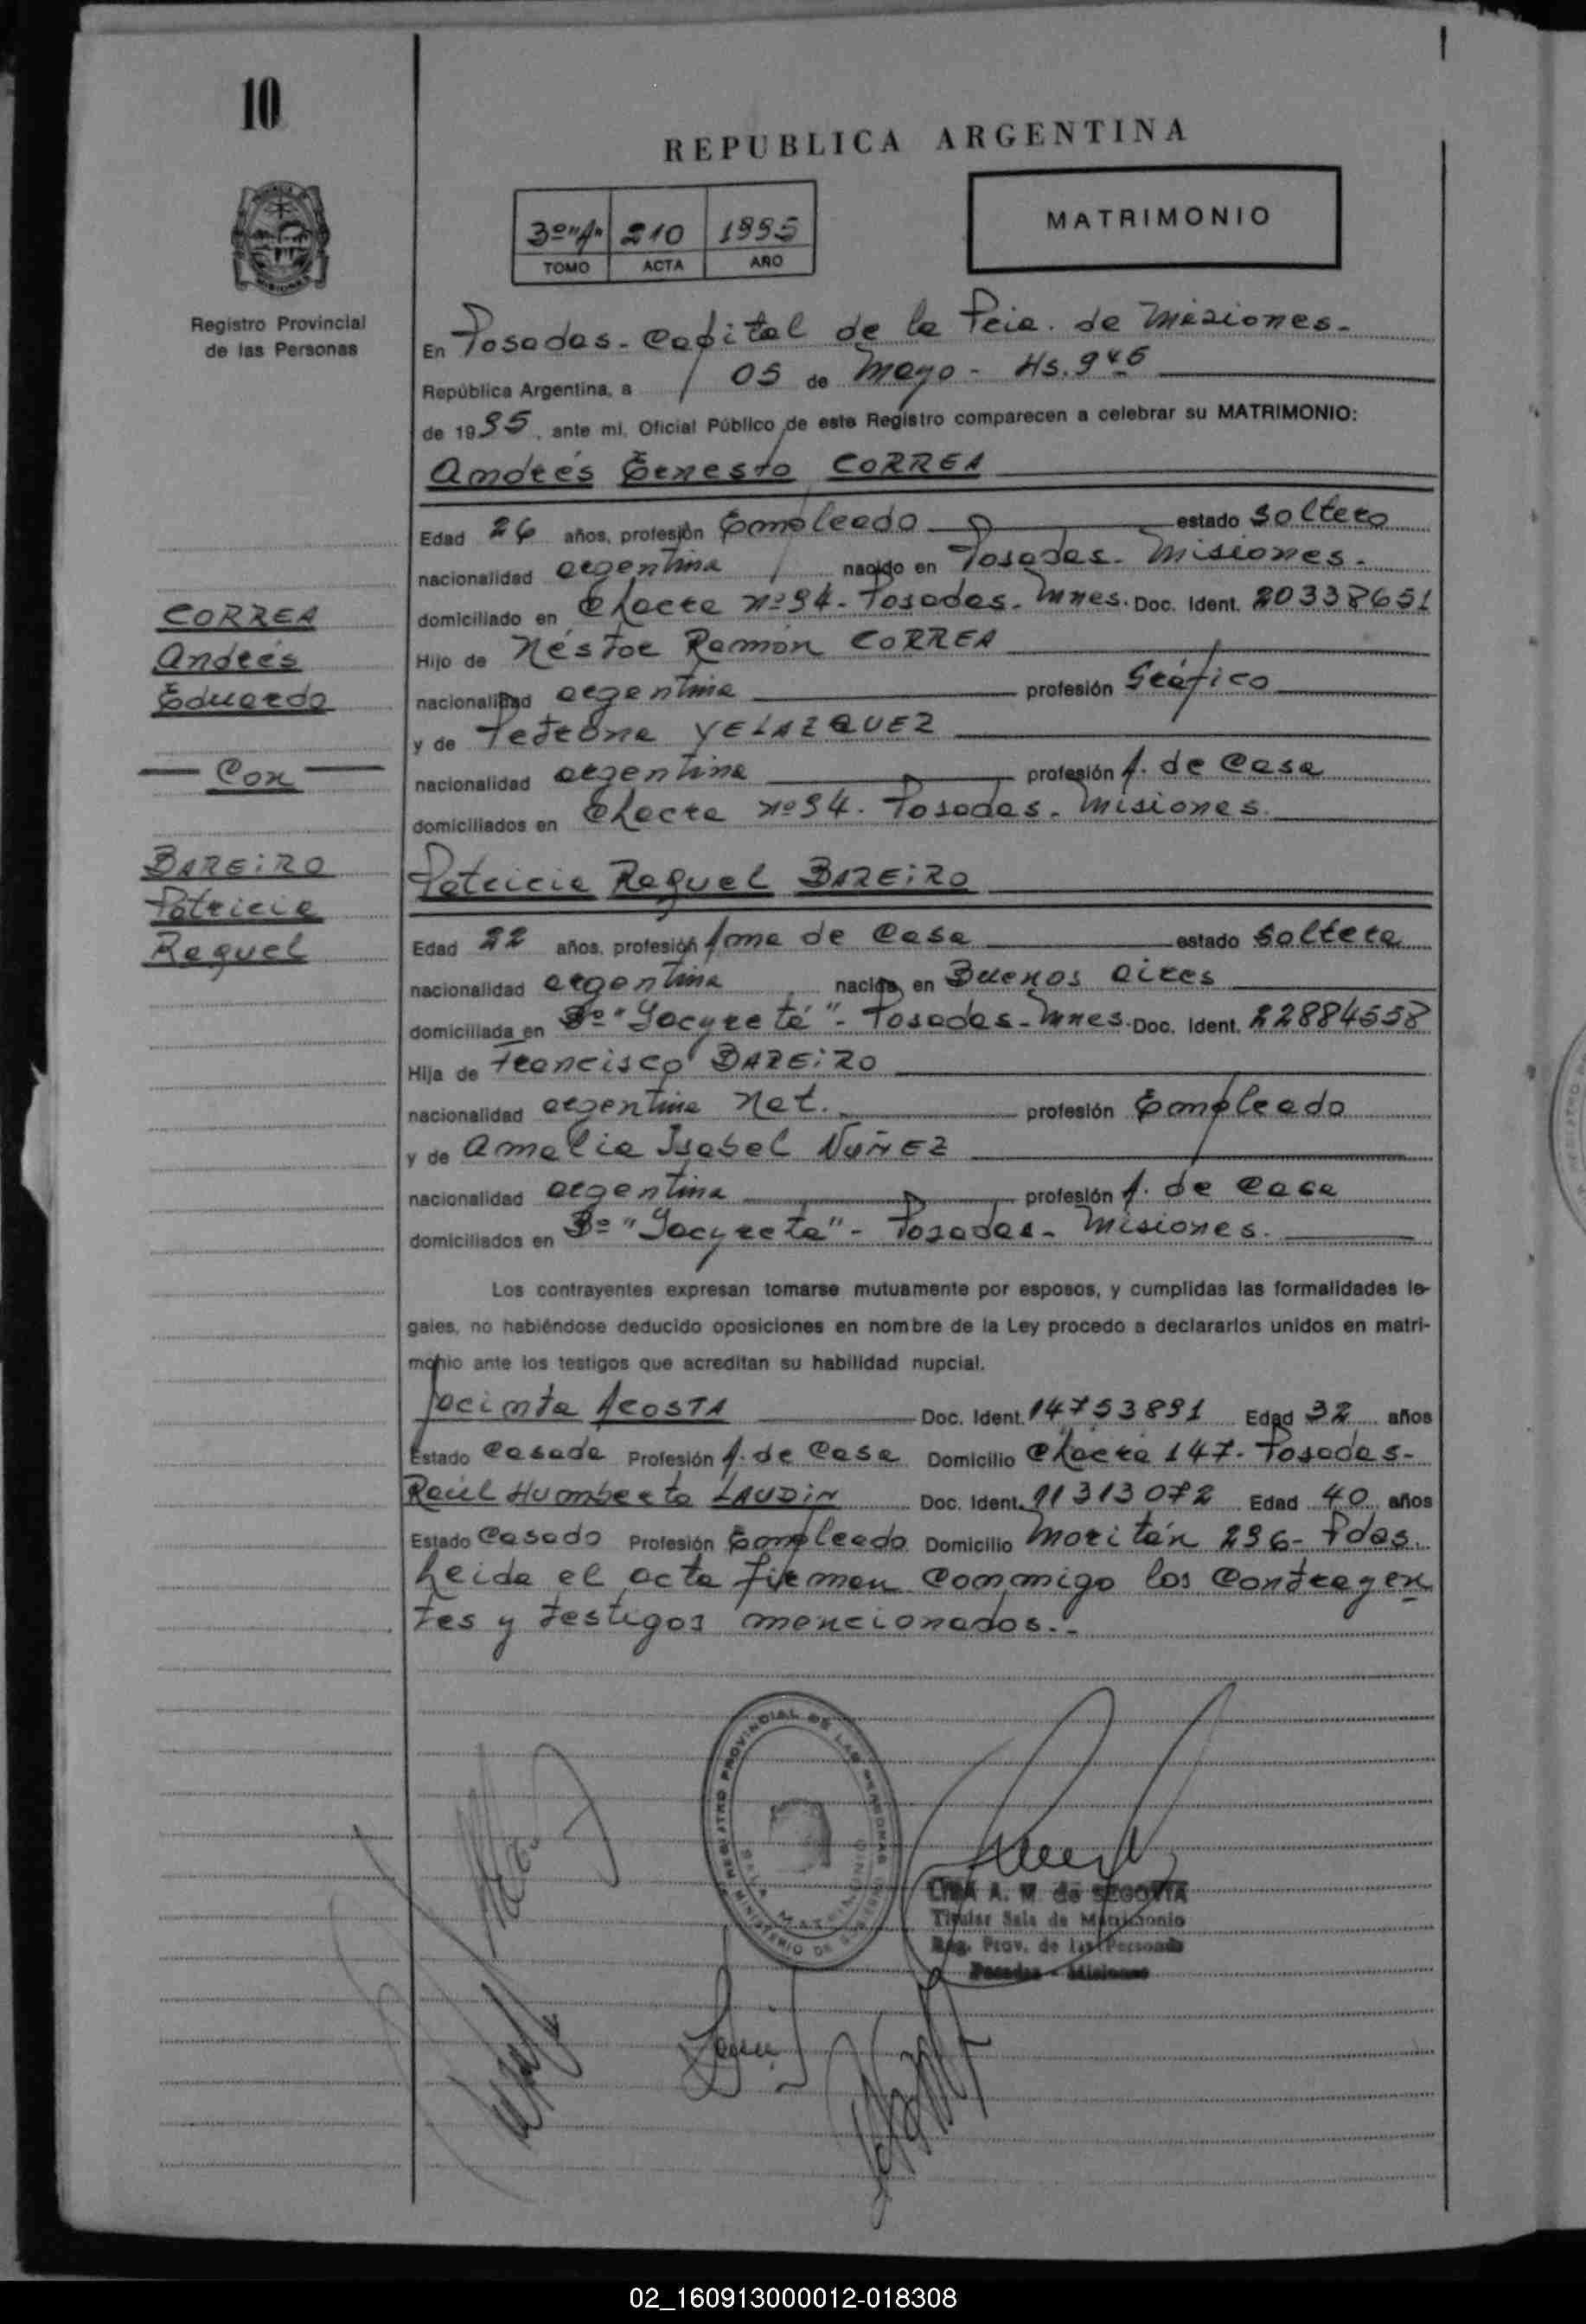 10
REPUBLICA ARGENTINA
3º "A" 210 1995
TOMO ACTA AÑO
MATRIMONIO
Registro Provincial
de las Personas
En Posadas - Capital de la Pcia. de Misiones -
República Argentina, a 05 de Mayo - Hs. 9 45
de 1995, ante mi, Oficial Público de este Registro comparecen a celebrar su MATRIMONIO:
Andrés Ernesto CORREA
Edad 26 años, profesión Empleado estado Soltero
nacionalidad argentina nacido en Posadas - Misiones.
domiciliado en Chacra nº 94 - Posadas - Mnes. Doc. Ident. 20338651
Hijo de Néstor Ramón CORREA
nacionalidad argentina profesión Gráfico
y de Petrona VELAZQUEZ
nacionalidad argentina profesión A. de Casa
domiciliados en Chacra nº 94 - Posadas - Misiones.
CORREA
Andrés
Eduardo
Con
BAREIRO
Patricia
Raquel
Patricia Raquel BAREIRO
Edad 22 años, profesión Ama de Casa estado Soltera
nacionalidad argentina nacida en Buenos Aires
domiciliada en Bº "Yacyretá" - Posadas - Mnes. Doc. Ident. 22884558
Hija de Francisco BAREIRO
nacionalidad argentina Nat. profesión Empleado
y de Amalia Isabel NUÑEZ
nacionalidad argentina profesión A. de Casa
domiciliados en Bº "Yacyreta" - Posadas - Misiones.
Los contrayentes expresan tomarse mutuamente por esposos, y cumplidas las formalidades le-
gales, no habiéndose deducido oposiciones en nombre de la Ley procedo a declararlos unidos en matri-
monio ante los testigos que acreditan su habilidad nupcial.
Jacinta ACOSTA Doc. Ident. 14753891 Edad 32 años
Estado Casada Profesión A. de Casa Domicilio Chacra 147 - Posadas -
Raúl Humberto LAUDIN Doc. Ident. 11313072 Edad 40 años
Estado Casado Profesión Empleado Domicilio Moritán 296 - Pdas.
Leida el acta firman conmigo los contrayen
tes y testigos mencionados.-
REGISTRO PROVINCIAL DE LAS PERSONAS
SALA MATRIMONIO
MINISTERIO DE GOBIERNO
A. M. de SEGOVIA
Titular Sala de Matrimonio
Reg. Prov. de las Personas
Posadas - Misiones
02_160913000012-018308